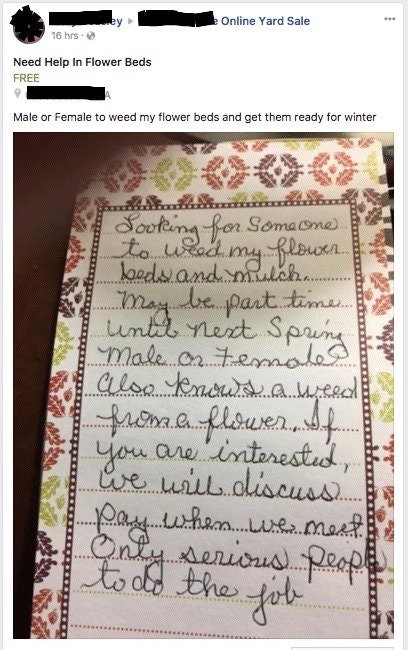 ey ▸ e Online Yard Sale
16 hrs ·
Need Help In Flower Beds
FREE
A
Male or Female to weed my flower beds and get them ready for winter
Looking for Someone
to weed my flower
beds and mulch.
May be part time
until next Spring
male or female
also knows a weed
from a flower, If
you are interested,
we will discuss
pay when we meet.
Only serious people
to do the job